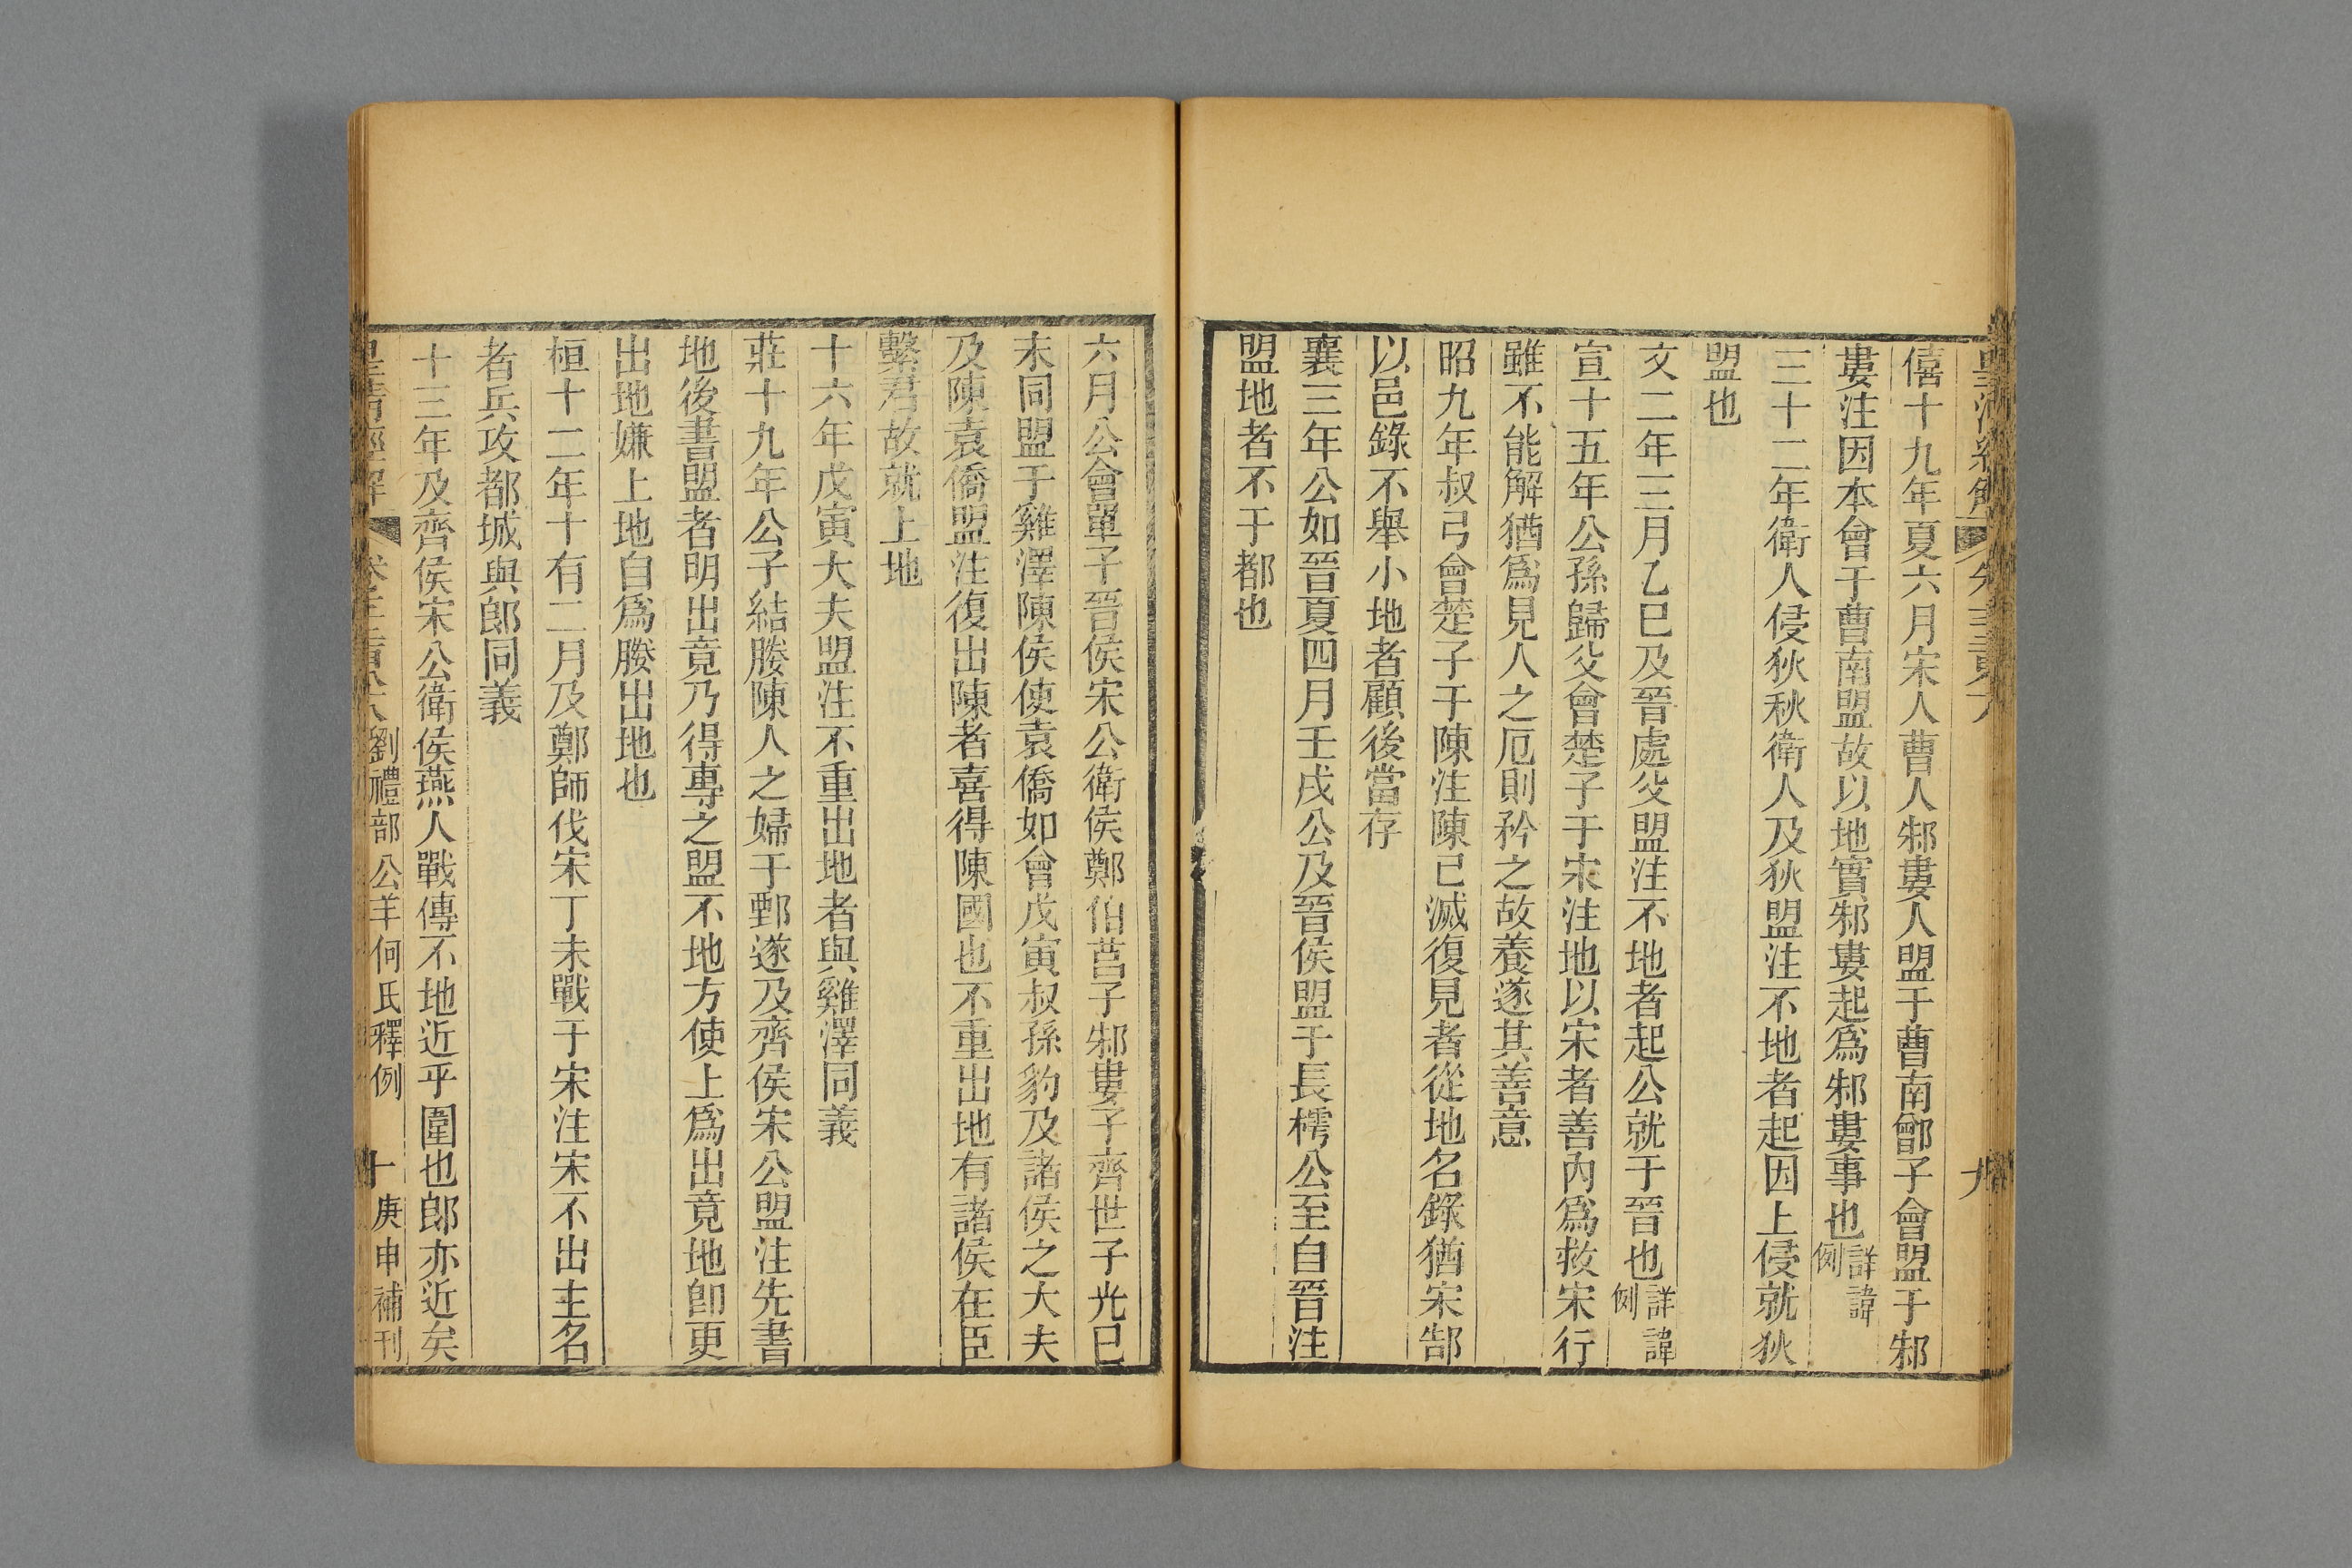 皇清經解 卷 九
僖十九年夏六月宋人曹人邾婁人盟于曹南鄫子會盟于邾
婁注因本會于曹南盟故以地實邾婁起爲邾婁事也詳諱例
三十二年衛人侵狄秋衛人及狄盟注不地者起因上侵就狄
盟也
文二年三月乙巳及晉處父盟注不地者起公就于晉也詳諱例
宣十五年公孫歸父會楚子于宋注地以宋者善內爲救宋行
雖不能解猶爲見人之厄則矜之故養遂其善意
昭九年叔弓會楚子于陳注陳已滅復見者從地名錄猶宋郜
以邑錄不舉小地者顧後當存
襄三年公如晉夏四月壬戌公及晉侯盟于長樗公至自晉注
盟地者不于都也
六月公會單子晉侯宋公衛侯鄭伯莒子邾婁子齊世子光已
未同盟于雞澤陳侯使袁僑如會戊寅叔孫豹及諸侯之大夫
及陳袁僑盟注復出陳者喜得陳國也不重出地有諸侯在臣
繫君故就上地
十六年戊寅大夫盟注不重出地者與雞澤同義
莊十九年公子結媵陳人之婦于鄄遂及齊侯宋公盟注先書
地後書盟者明出竟乃得專之盟不地方使上爲出竟地卽更
出地嫌上地自爲媵出地也
桓十二年十有二月及鄭師伐宋丁未戰于宋注宋不出主名
者兵攻都城與郎同義
十三年及齊侯宋公衛侯燕人戰傳不地近乎圍也郎亦近矣
皇清經解 卷 劉禮部公羊何氏釋例 十 庚申補刊